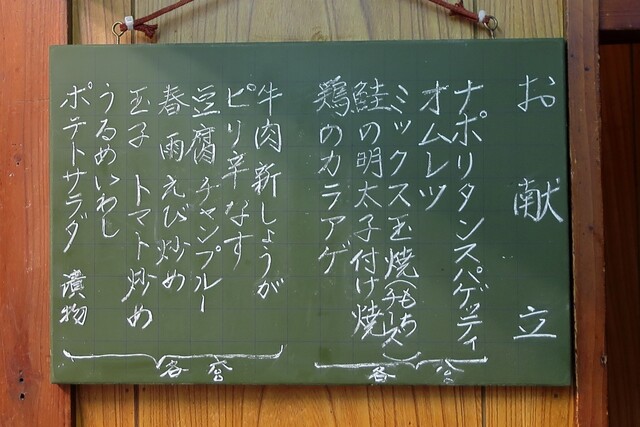 お献立
ナポリタンスパゲッティ
オムレツ
ミックス玉焼(もちチーズ)
鮭の明太子付け焼
鶏のカラアゲ
各
牛肉新しょうが
ピリ辛なす
豆腐チャンプルー
春雨えび炒め
玉子 トマト炒め
うるめいわし
ポテトサラダ 漬物
各